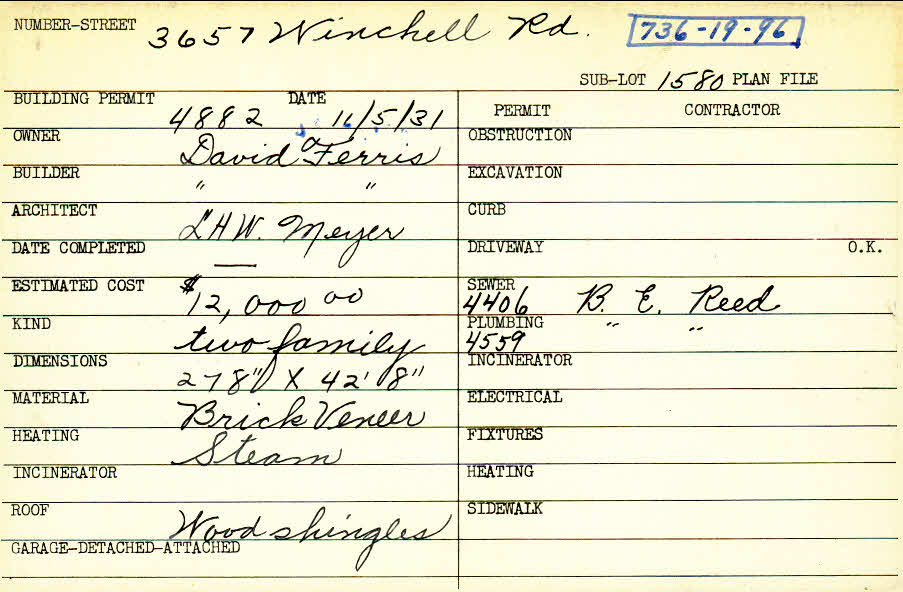 NUMBER-STREET 3657 Winchell Rd. 736-19-96
SUB-LOT 1580 PLAN FILE
BUILDING PERMIT 4882 DATE 11/5/31 PERMIT CONTRACTOR
OWNER David Ferris OBSTRUCTION
BUILDER " " EXCAVATION
ARCHITECT L H W. Meyer CURB
DATE COMPLETED — DRIVEWAY O.K.
ESTIMATED COST $12,000 00 SEWER 4406 B. E. Reed
KIND two family PLUMBING 4559 " "
DIMENSIONS 27 8" X 42' 8" INCINERATOR
MATERIAL Brick Veneer ELECTRICAL
HEATING Steam FIXTURES
INCINERATOR HEATING
ROOF Wood shingles SIDEWALK
GARAGE-DETACHED-ATTACHED